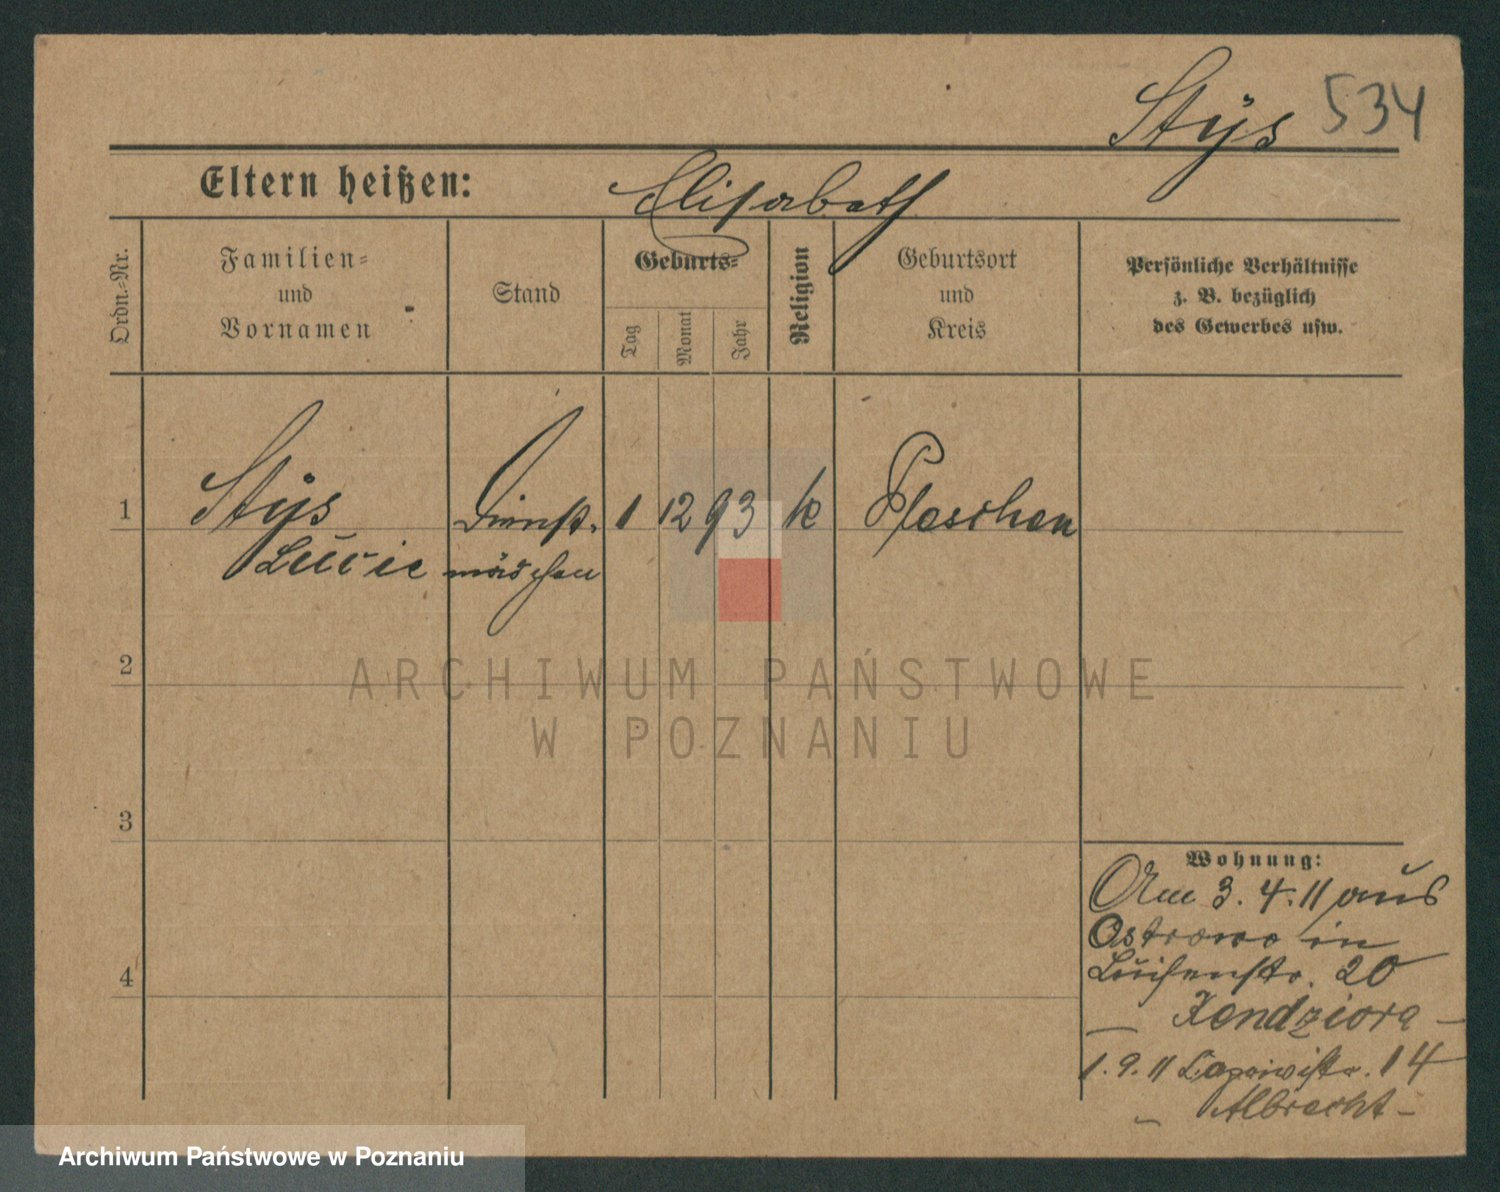 Stÿs 534
Eltern heißen: Elisabeth
Ordn.-Nr.
Familien-
und
Vornamen
Stand
Geburts-
Tag
Monat
Jahr
Religion
Geburtsort
und
Kreis
Persönliche Verhältnisse
z. B. bezüglich
des Gewerbes usw.
1 Stÿs Dienst- 1 12 93 k Pleschen
Lucie mädchen
2
ARCHIWUM PAŃSTWOWE
W POZNANIU
3
Wohnung:
Am 3.4.11 aus
Ostrowo in
Luisenstr. 20
4
Kendziora -
1.9.11 Caprivistr. 14
- Albrecht -
Archiwum Państwowe w Poznaniu